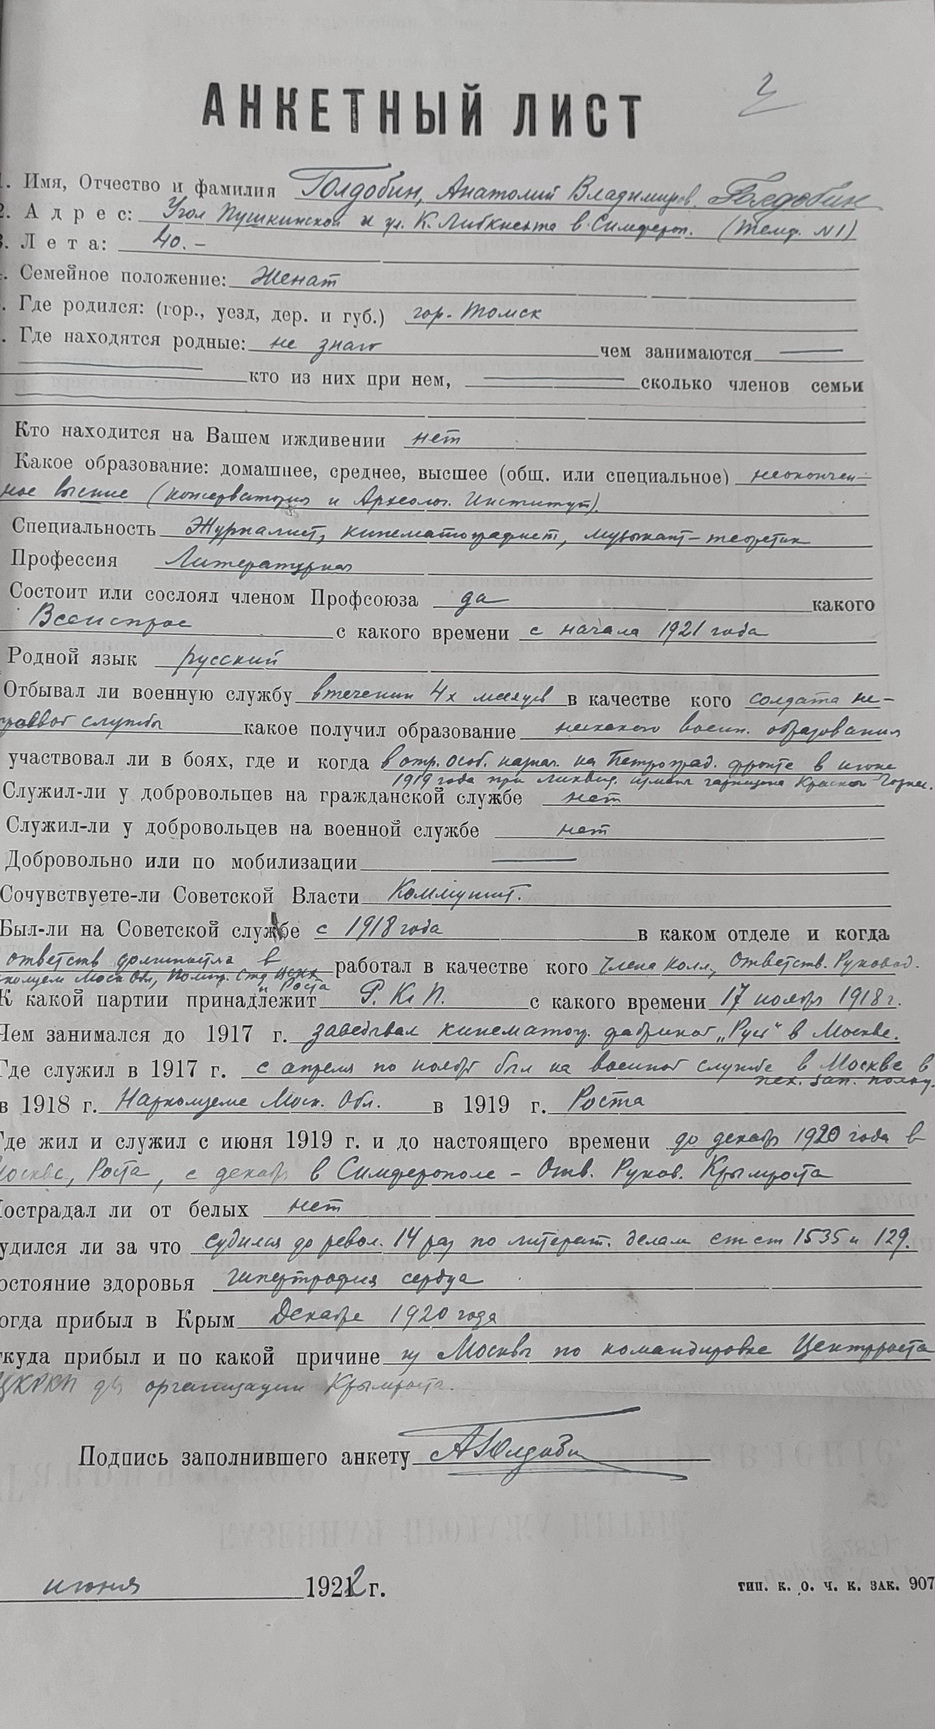 2
АНКЕТНЫЙ ЛИСТ
1. Имя, Отчество и фамилия Голдобин, Анатолий Владимиров. Голдобин
2. Адрес: Угол Пушкинской и ул. К. Либкнехта в Симфероп. (Тенд. №1)
3. Лета: 40. –
Семейное положение: Женат
Где родился: (гор., уезд, дер. и губ.) гор. Томск
Где находятся родные: не знаю чем занимаются —
кто из них при нем, — сколько членов семьи
Кто находится на Вашем иждивении нет
Какое образование: домашнее, среднее, высшее (общ. или специальное) неокончен-
ное высшее (консерватория и Археолог. Институт)
Специальность Журналист, кинематографист, музыкант-теоретик
Профессия Литературная
Состоит или сослоял членом Профсоюза да какого
Всеиспрос с какого времени с начала 1921 года
Родной язык русский
Отбывал ли военную службу втечении 4х месяцев в качестве кого солдата не-
службы какое получил образование никакого военн. образования
участвовал ли в боях, где и когда в отр. особ. назнач. на Петроград. фронте в июне
1919 года при ликвид. измены гарнизона Красной Горки.
Служил-ли у добровольцев на гражданской службе нет
Служил-ли у добровольцев на военной службе нет
Добровольно или по мобилизации —
Сочувствуете-ли Советской Власти Коммунист.
Был-ли на Советской службе с 1918 года в каком отделе и когда
ответств должностях в
Моск Обл, и Роста работал в качестве кого Члена Колл, Ответств. Руковод.
К какой партии принадлежит Р. К. П. с какого времени 17 ноябр 1918 г.
Чем занимался до 1917 г. заведывал кинематогр. фабрикой „Русь" в Москве.
Где служил в 1917 г. с апреля по ноябрь был на военной службе в Москве в
пех. зап. полку.
в 1918 г. Наркомземе Моск. Обл. в 1919 г. Роста
Где жил и служил с июня 1919 г. и до настоящего времени до декабр 1920 года в
Москве, Роста, с декабр в Симферополе – Отв. Руков. Крымроста
Пострадал ли от белых нет
удился ли за что судился до револ. 14 раз по литерат. делам ст ст 1535 и 129.
остояние здоровья гипертрофия сердца
огда прибыл в Крым Декабре 1920 года
ткуда прибыл и по какой причине из Москвы по командировке Центрроста
ЦКРКП для организации Крымроста.
Подпись заполнившего анкету АГолдобин
июня 1922 г.
тип. к. о. ч. к. зак. 907